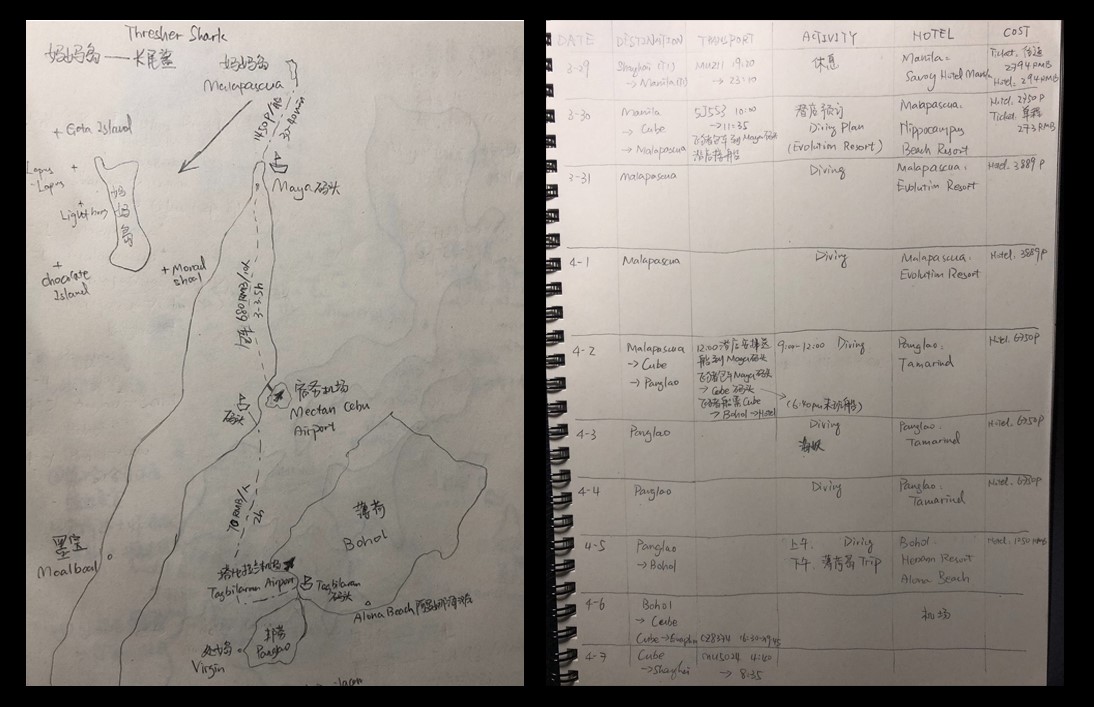 Thresher Shark
妈妈岛 —— 长尾鲨
妈妈岛
Malapascua
30-40min
+ Gato Island
Lapus
-Lapus
+
Maya 码头
妈妈岛
+
Lighthouse
+
chocorate
Island
+ Monad
shoal
宿务机场
Mectan Cebu
Airport
码头
2h
薄荷
Bohol
墨宝
Moalboal
Tagbilaran Airport
Tagbilaran
码头
Alona Beach
邦劳
Panglao
处女岛
Virgin
DATE DISTINATION TRANSPORT ACTIVITY HOTEL COST
3-29 Shanghai (T1)
→ Manila(T1)
MU211 19:20
→ 23:10
休息
Manila:
Savoy Hotel Manila
Ticket. 往返
2794 RMB
Hotel. 294 RMB
3-30 Manila
→ Cube
→ Malapascua
5J553 10:00
→ 11:35
潜店预订
Diving Plan
(Evolution Resort)
Malapascua.
Hippocampus
Beach Resort
Hotel. 2750 P
Ticket 单程
273 RMB
3-31 Malapascua Diving Malapascua:
Evolution Resort
Hotel. 3889 P
4-1 Malapascua Diving Malapascua:
Evolution Resort
Hotel. 3889 P
4-2 Malapascua
→ Cube
→ Panglao
→ Cube 码头
→ Bohol → Hotel
9:00-12:00 Diving
Panglao:
Tamarind
Hotel. 6750 P
4-3 Panglao Diving Panglao.
Tamarind
Hotel. 6750 P
4-4 Panglao Diving Panglao:
Tamarind
Hotel. 6750 P
4-5 Panglao
→ Bohol
上午. Diving
下午. 薄荷岛 Trip
Bohol:
Henann Resort
Alona Beach
4-6 Bohol
→ Cube
机场
4-7 Cube
→ Shanghai
→ 8:35